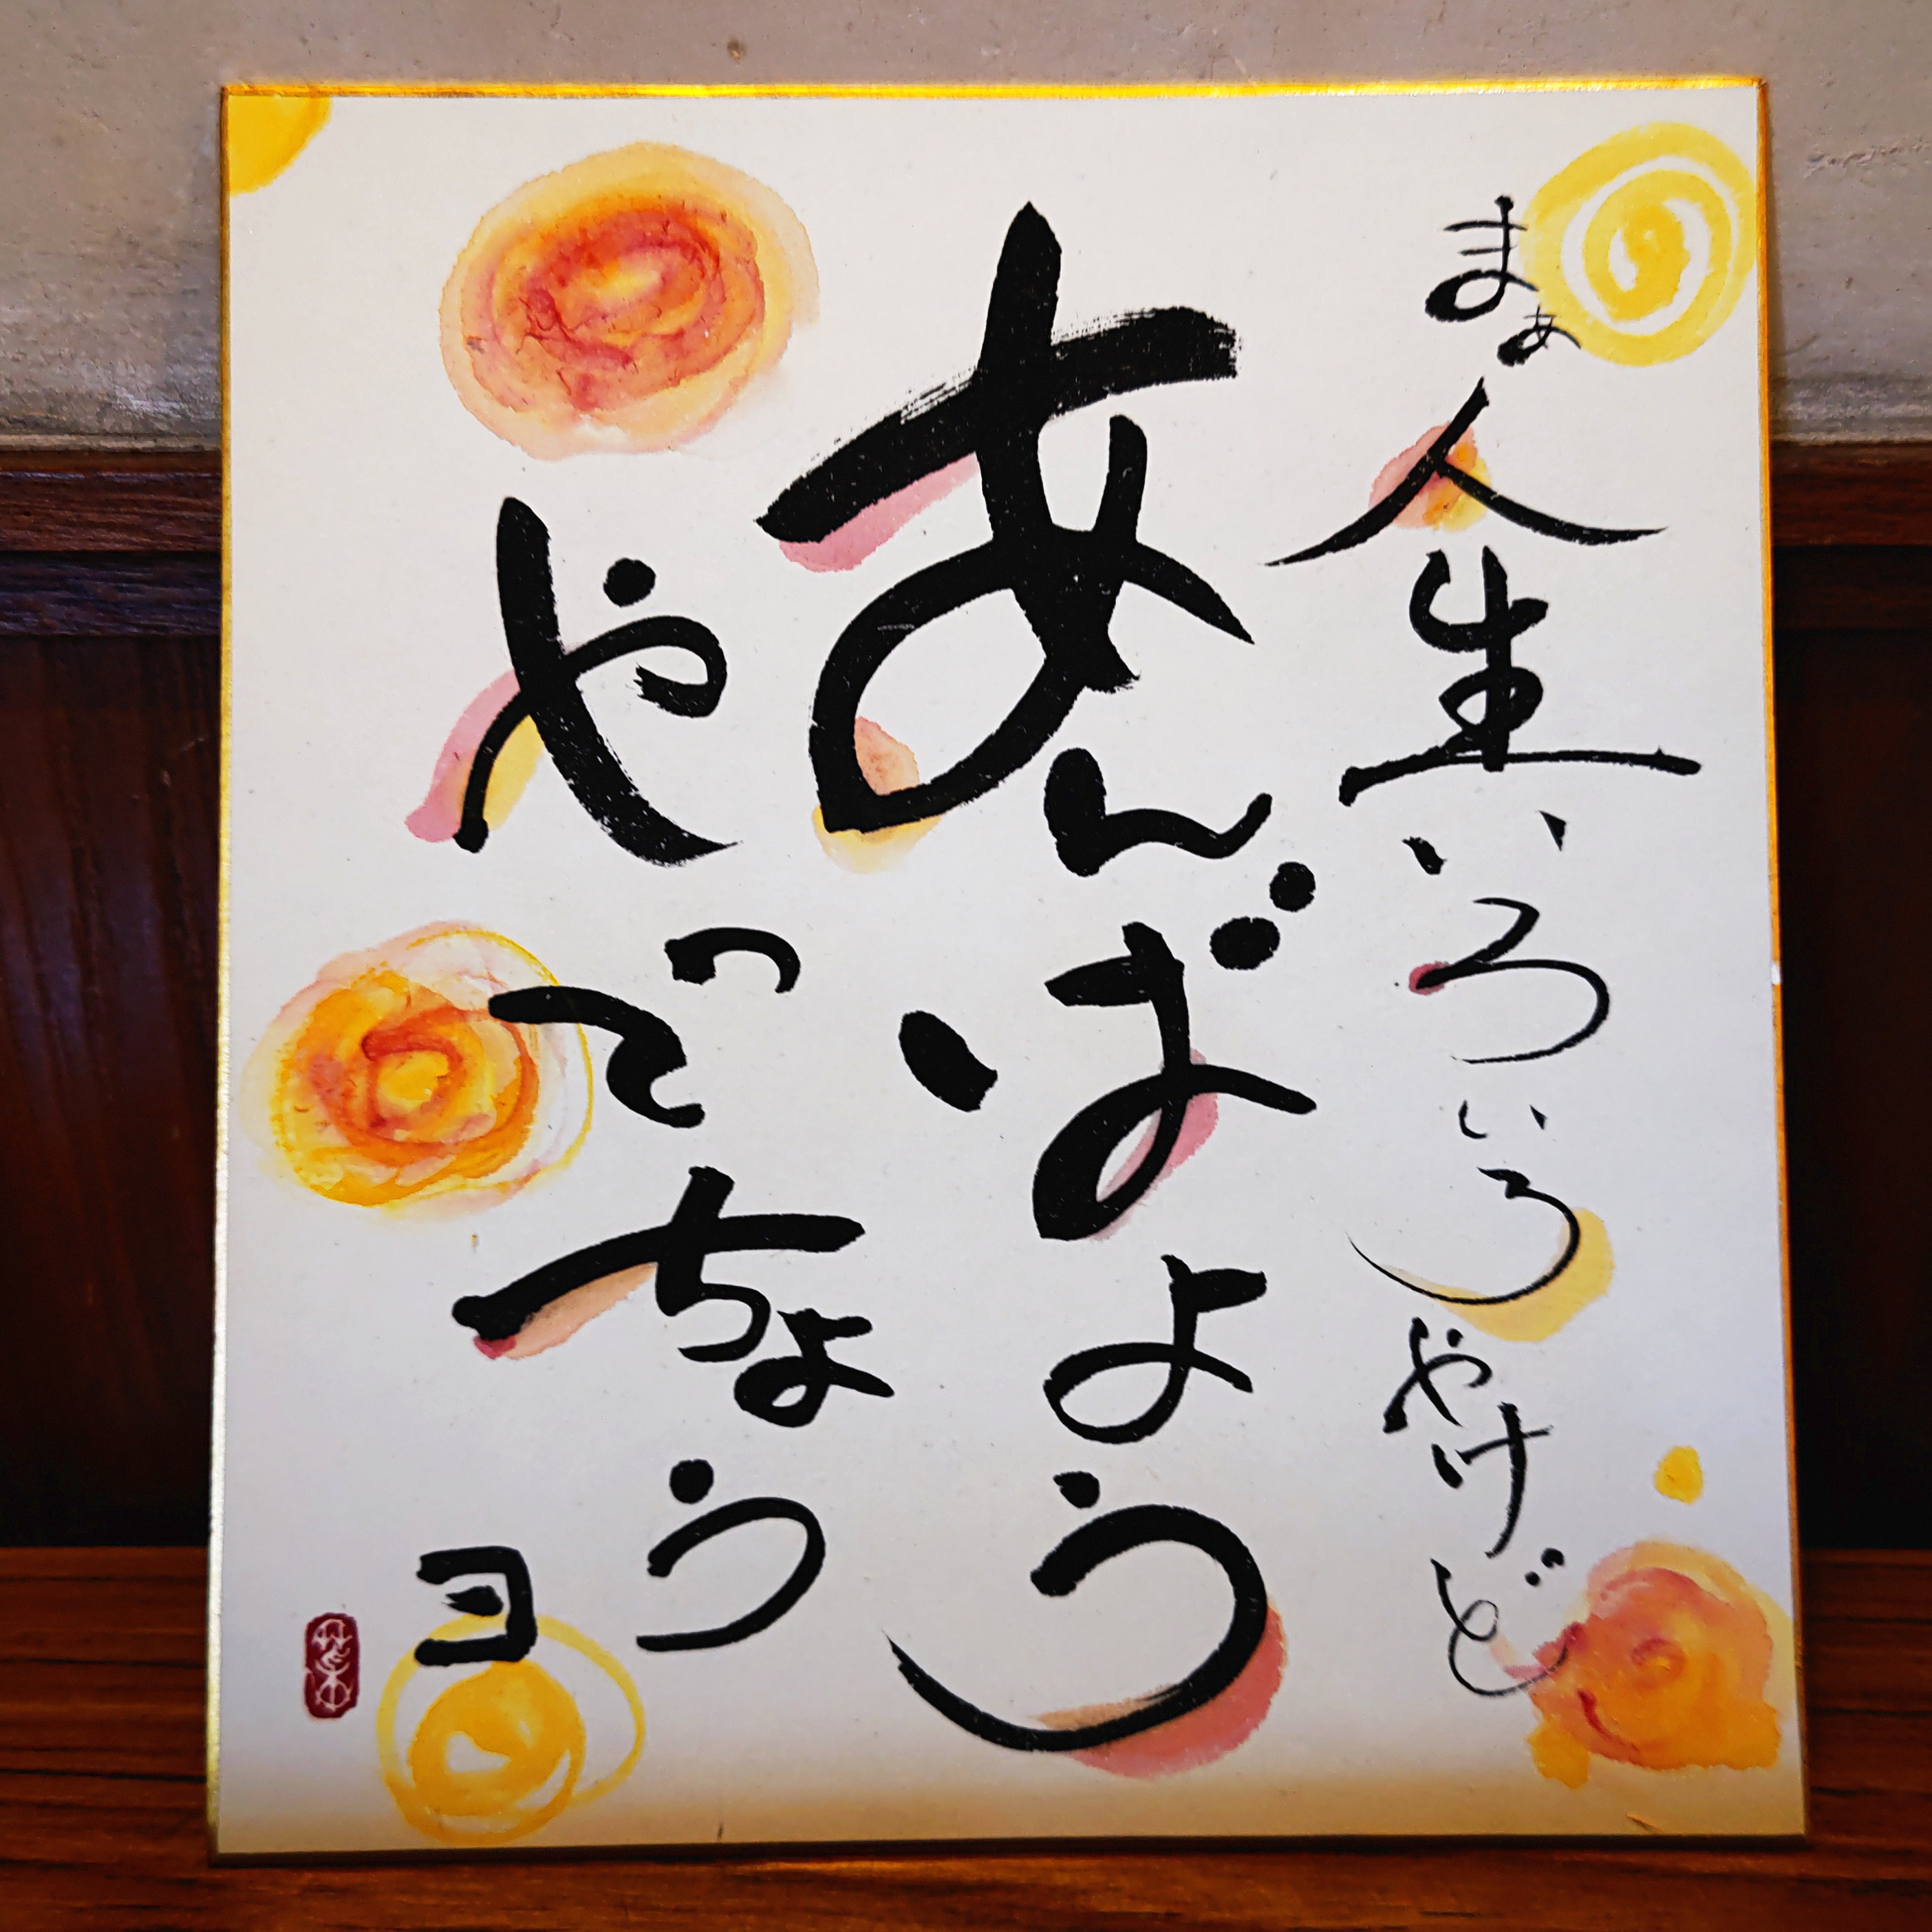 まぁ人生いろいろやけど
あんばよう
やってちょう
ヨ